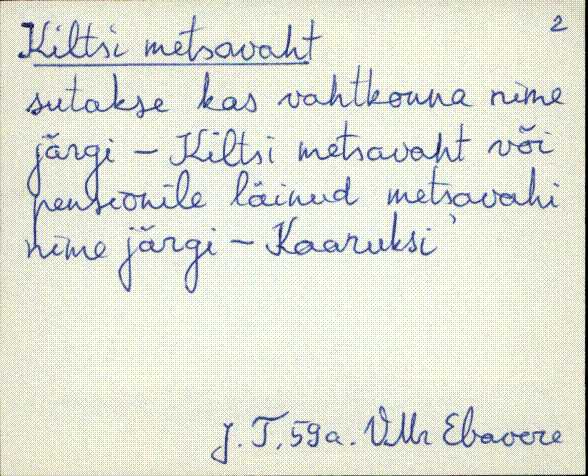 2
Kiltsi metsavaht
sutakse kas vahtkonna nime
järgi – Kiltsi metsavaht või
pensionile läinud metsavahi
nime järgi – Kaaruksi'
J. T. 59a. VMr Ebavere